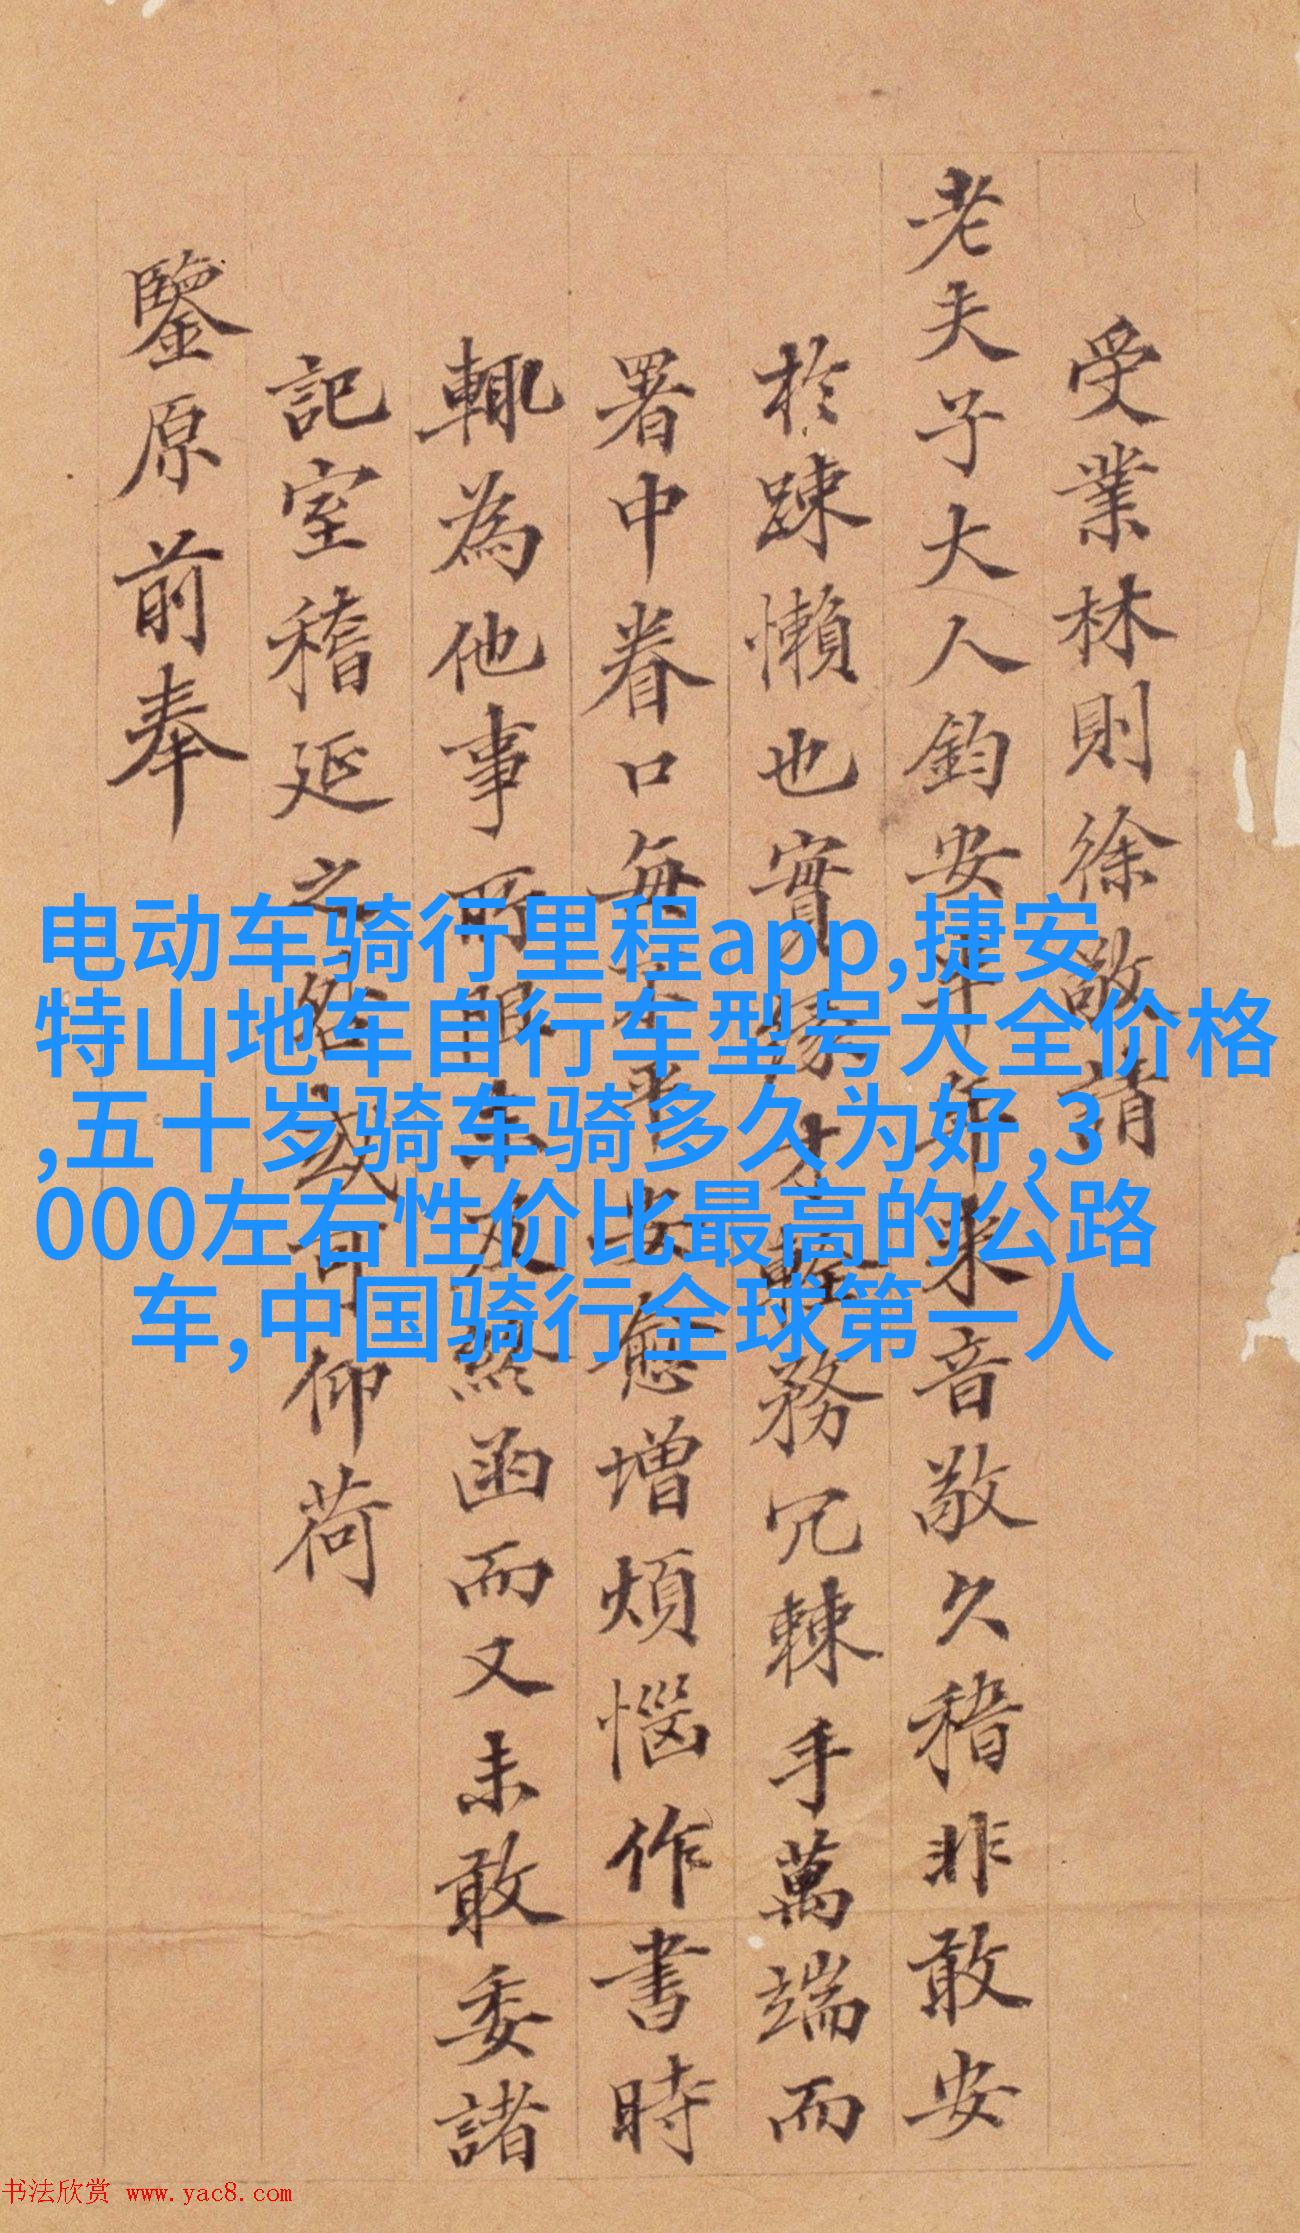 受業林則徐敬請
老夫子大人鈞安半年來音敬久稽非敢安
於踈懶也實緣才輇務冗棘手萬端而
署中眷口每不平安愈增煩惱作書時
輒為他事所未及終函而又未敢委諸
記室稽延之咎或可仰荷
鑒原前奉
电动车骑行里程app,捷安
特山地车自行车型号大全价格
,五十岁骑车骑多久为好,3
000左右性价比最高的公路
车,中国骑行全球第一人
书法欣赏 www.yac8.com